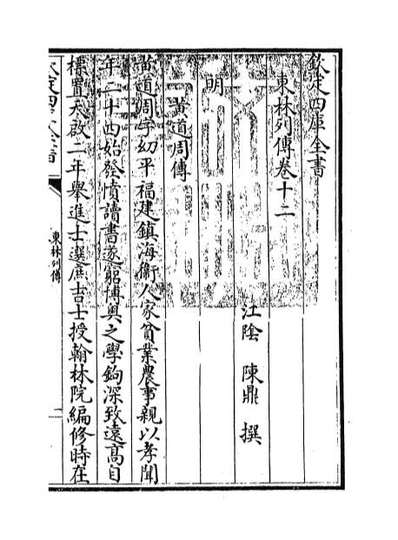 欽定四庫全書
東林列傳卷十二
江陰 陳鼎 撰
明
黃道周傳
黃道周字幼平福建鎮海衛人家貧業農事親以孝聞
年二十四始發憤讀書遂窮博奧之學鉤深致遠高自
標置天啟二年舉進士選庶吉士授翰林院編修時在
欽定四庫全書
東林列傳
一